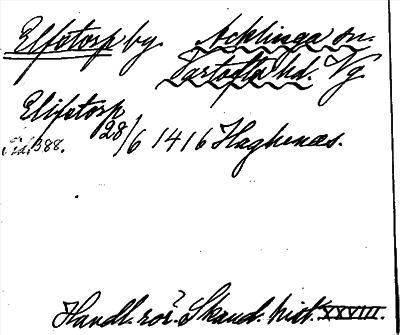 Elfstorp by. Acklinga sn.
Vartofta hd. Vg.
Elifstorp
28/6 1416 Haghenæs.
388.
Handl. rör. Skand. hist. XXVIII.